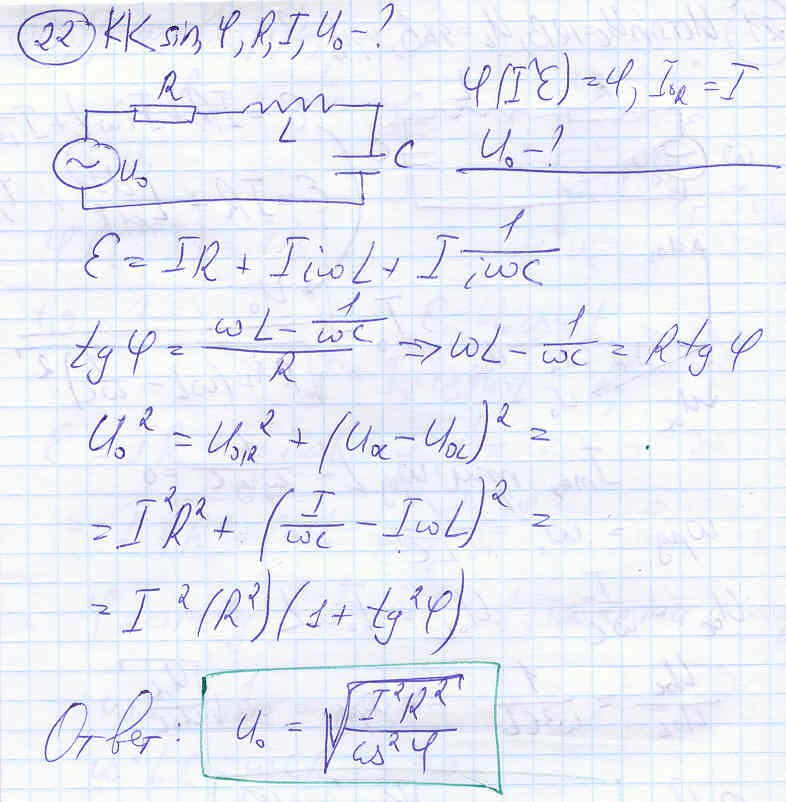 22 KK sin, φ, R, I, U₀ - ?
φ(I^ℰ) = φ, I₀R = I
U₀ - ?
R
L
C
~ U₀
ℰ = IR + IiωL + I 1/(iωC)
tg φ = (ωL - 1/(ωC))/R ⇒ ωL - 1/(ωC) = R tg φ
U₀² = U₀R² + (U₀c - U₀L)² =
= I²R² + (I/(ωC) - IωL)² =
= I²(R²)(1 + tg²φ)
Ответ: U₀ = √(I²R²/cos²φ)